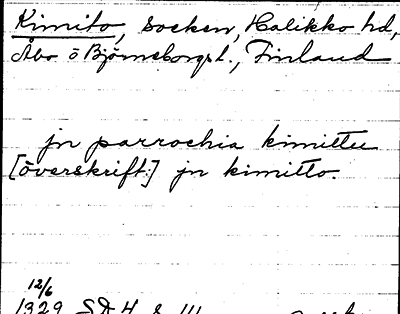 Kimito, socken, Halikko hd,
Åbo o Björneborgs l., Finland
jn parrochia kimittu
[överskrift:] jn kimitto.
12/6
1329 SD 4 s